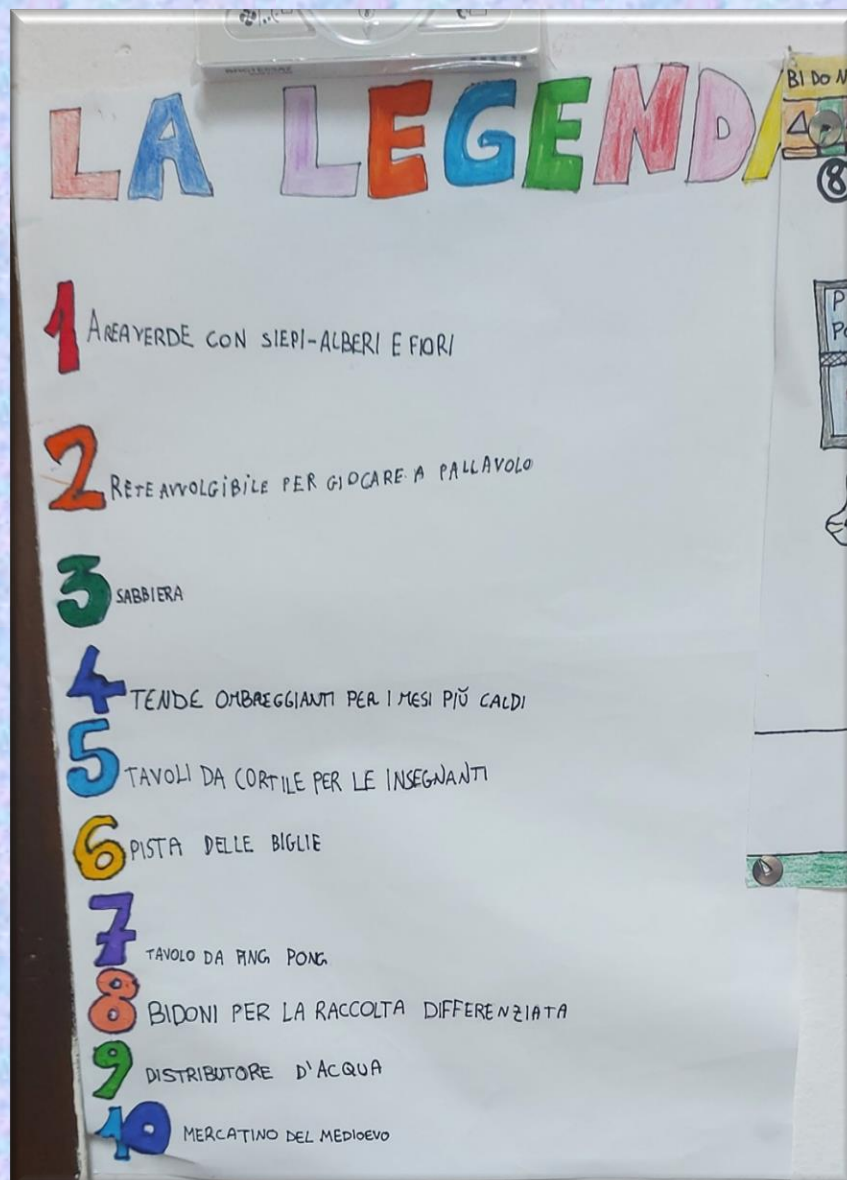 LA LEGENDA
BIDON
8
1 AREA VERDE CON SIEPI-ALBERI E FIORI
2 RETE AVVOLGIBILE PER GIOCARE A PALLAVOLO
3 SABBIERA
4 TENDE OMBREGGIANTI PER I MESI PIÙ CALDI
5 TAVOLI DA CORTILE PER LE INSEGNANTI
6 PISTA DELLE BIGLIE
7 TAVOLO DA PING PONG
8 BIDONI PER LA RACCOLTA DIFFERENZIATA
9 DISTRIBUTORE D'ACQUA
10 MERCATINO DEL MEDIOEVO